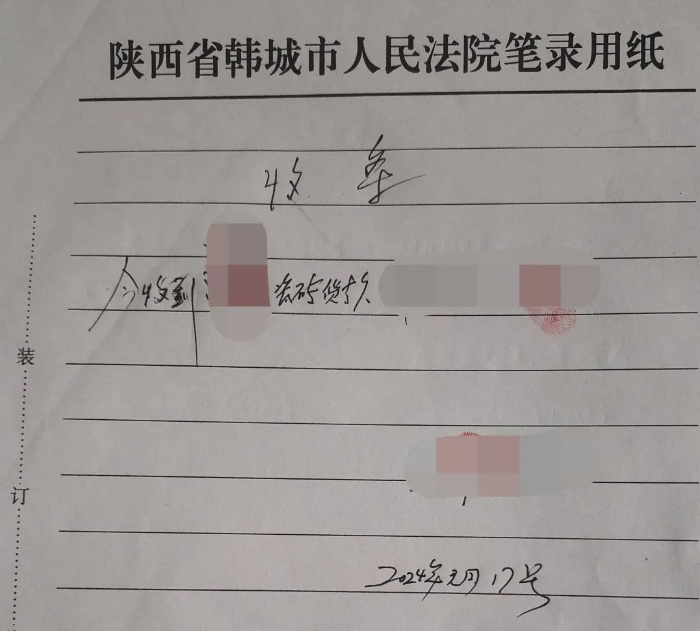 陕西省韩城市人民法院笔录用纸
收条
今收到 瓷砖货款
装
订
2024年元月17号